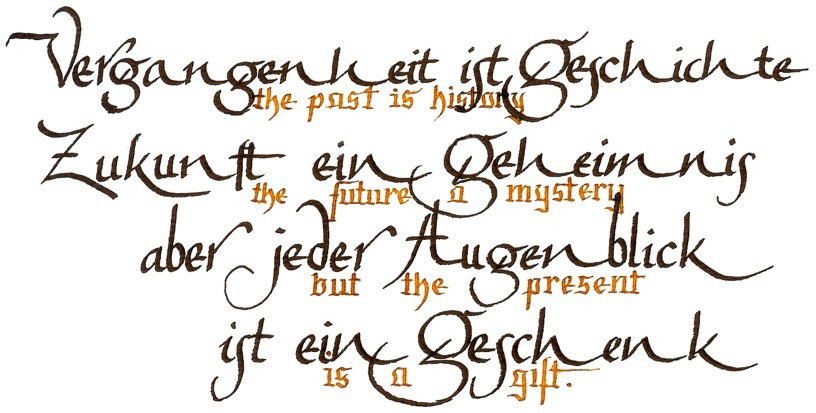 Vergangenheit ist Geschichte
the past is history
Zukunft ein Geheimnis
the future a mystery
aber jeder Augenblick
but the present
ist ein Geschenk
is a gift.